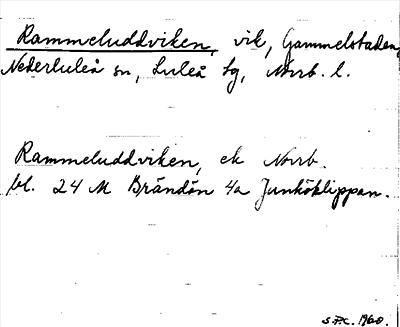 Rammeluddviken, vik, Gammelstaden,
Nederluleå sn, Luleå tg, Norrb. l.
Rammeluddviken, ek Norrb.
bl. 24 M Brändön 4a Junköklippan.
S.F.K. 1960.